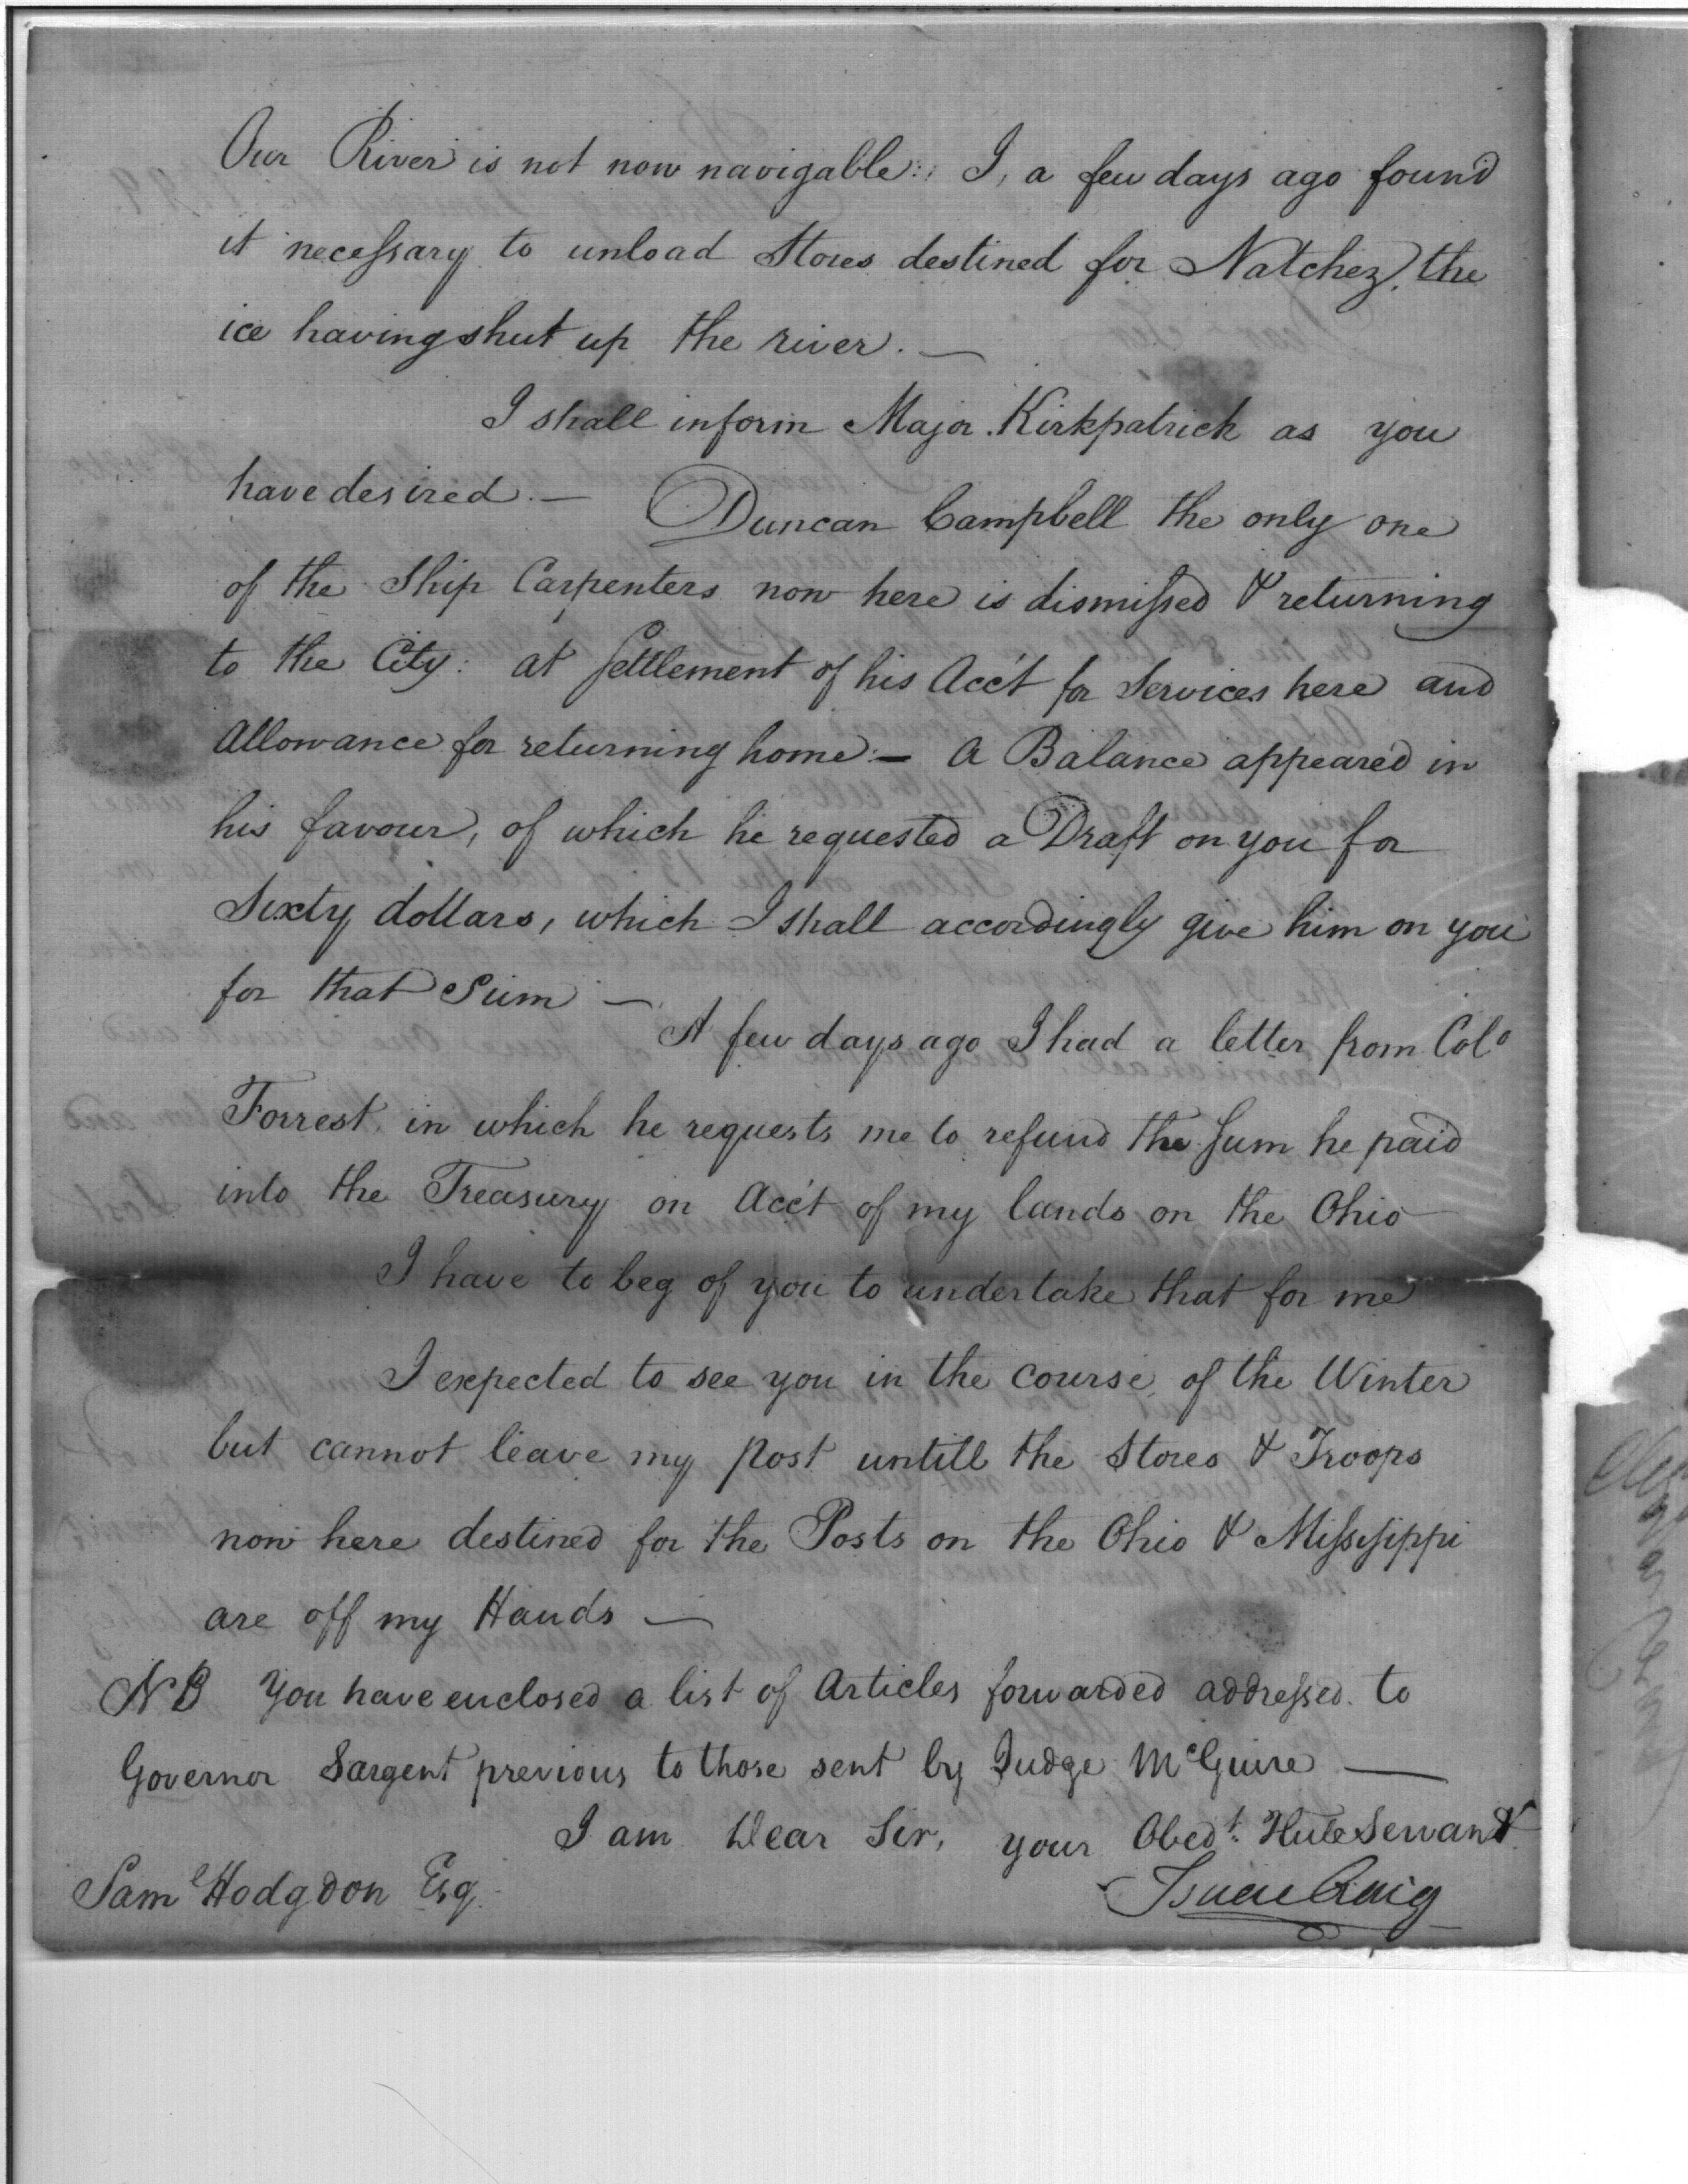 Our River is not now navigable: I, a few days ago found
it necessary to unload Stores destined for Natchez, the
ice having shut up the river. —
I shall inform Major Kirkpatrick as you
have desired. — Duncan Campbell the only one
of the Ship Carpenters now here is dismissed & returning
to the City: at Settlement of his Acc't for Services here and
Allowance for returning home:— A Balance appeared in
his favour, of which he requested a Draft on you for
Sixty dollars, which I shall accordingly give him on you
for that Sum — A few days ago I had a letter from Colo
Forrest in which he requests me to refund the Sum he paid
into the Treasury on Acc't of my lands on the Ohio
I have to beg of you to undertake that for me
I expected to see you in the course of the Winter
but cannot leave my Post untill the Stores & Troops
now here destined for the Posts on the Ohio & Missisippi
are off my Hands —
NB You have enclosed a list of Articles forwarded addressed to
Governor Sargent previous to those sent by Judge McGuire —
I am Dear Sir, your Obedt. Hule Servant
Saml Hodgdon Esq.
Isaac Craig